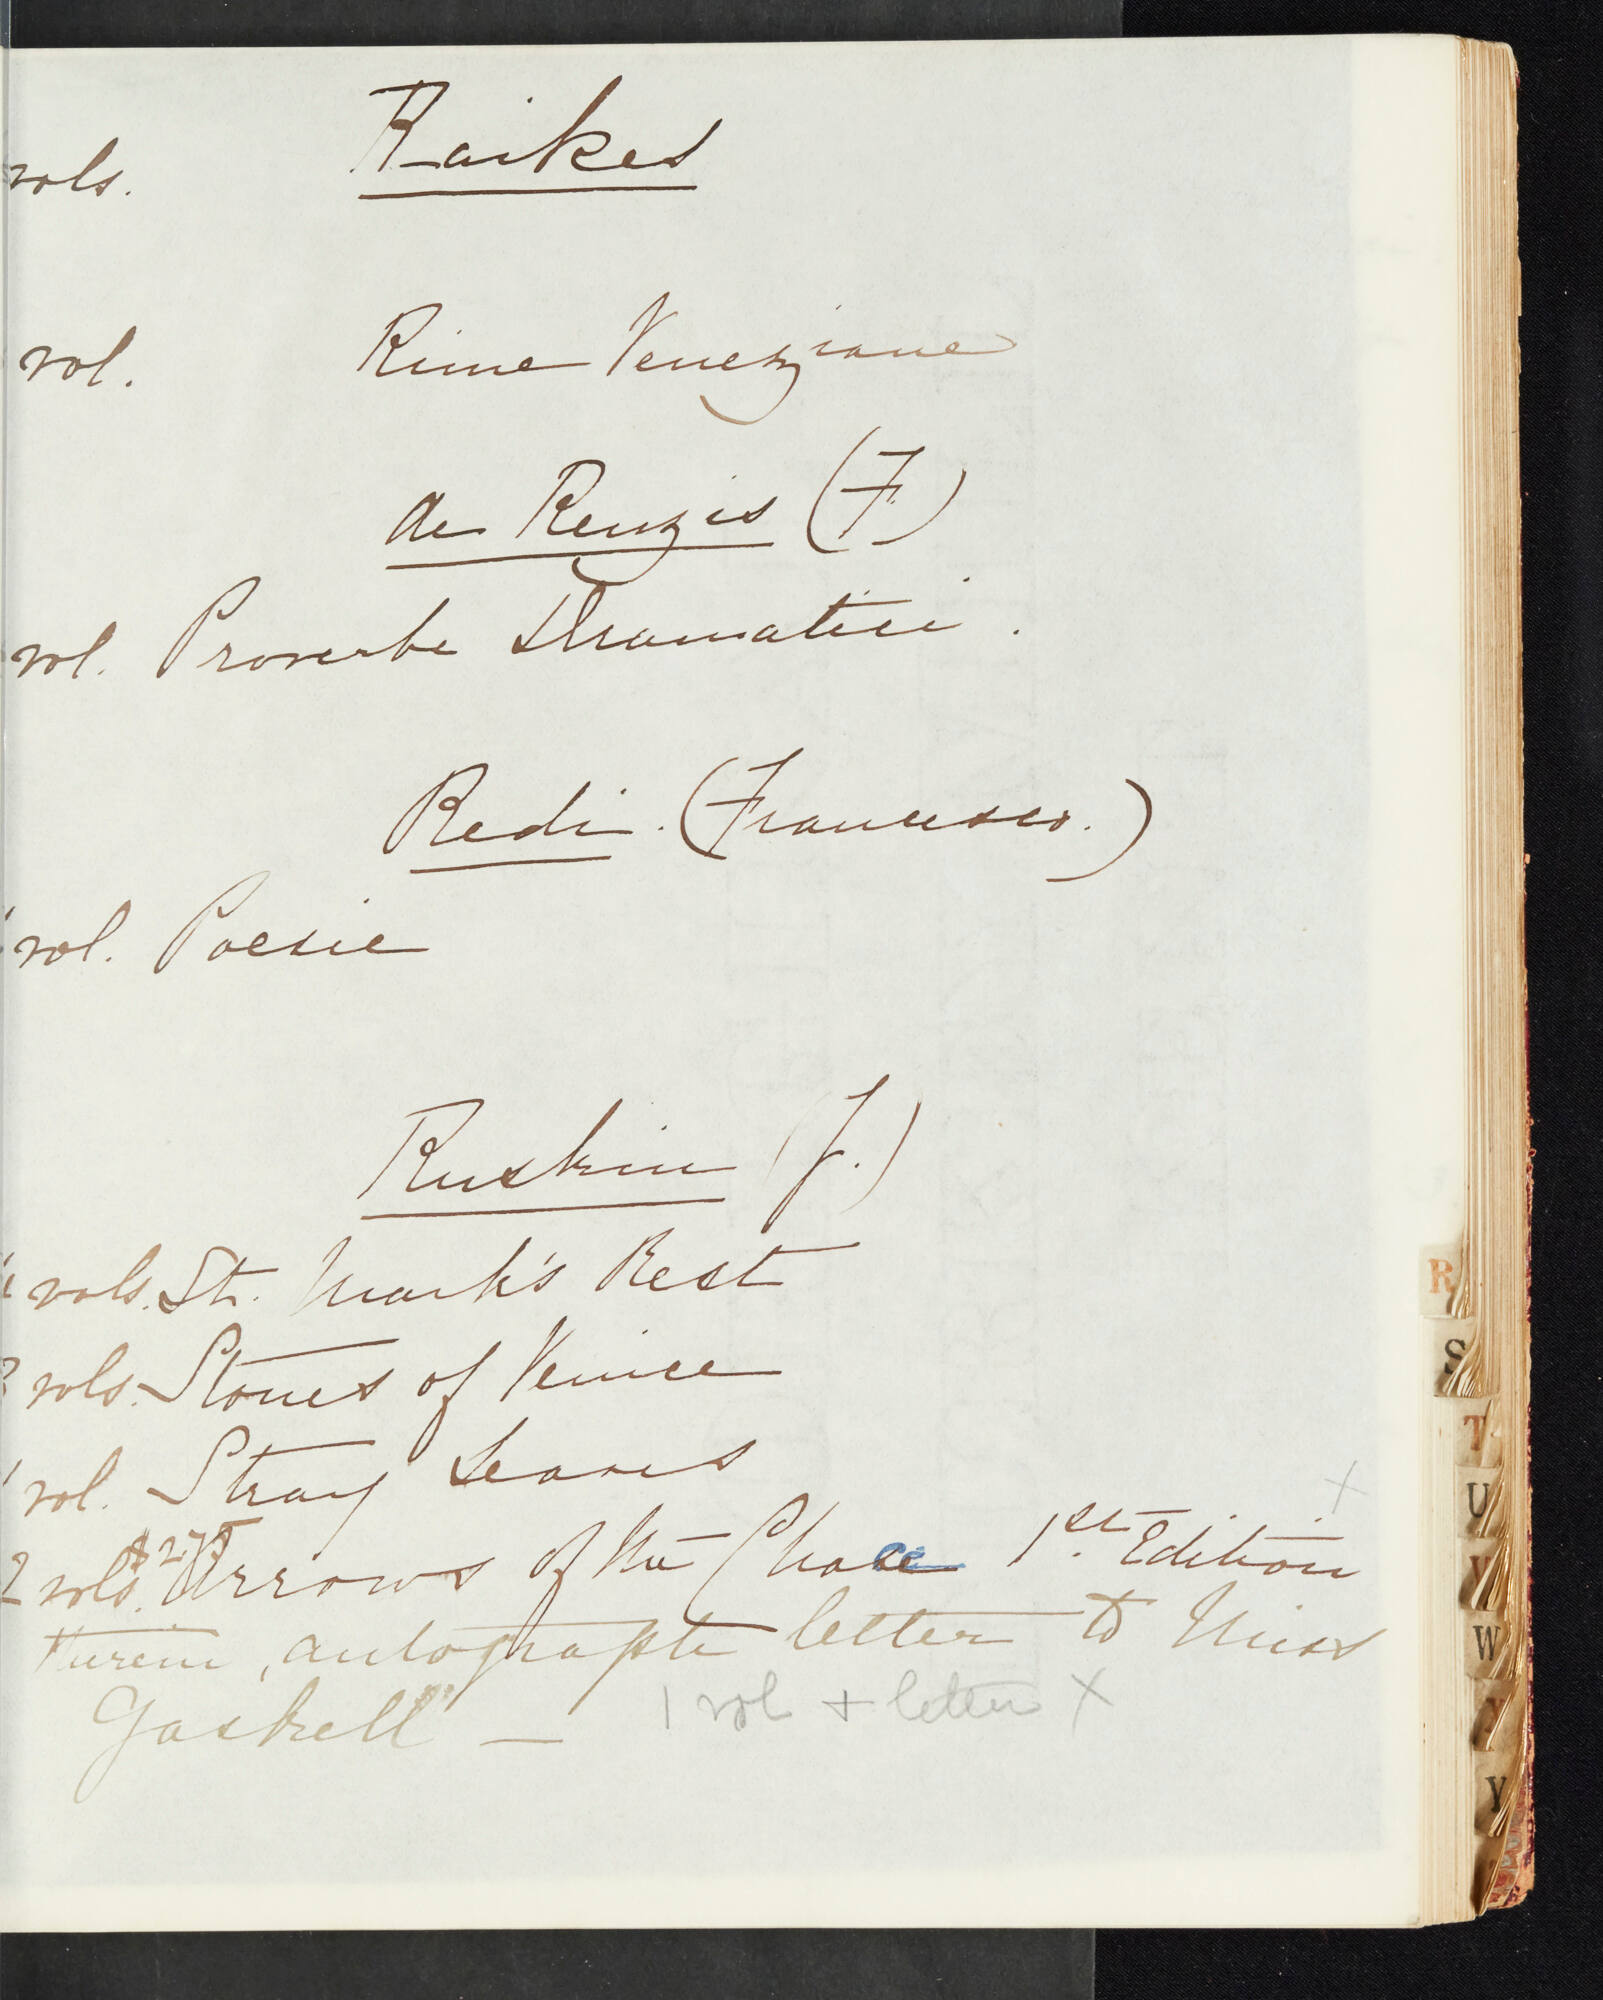 vols. Raikes
vol. Rime Veneziane
de Renzis (F.)
vol. Proverbe Dramatici.
Redi. (Francesco.)
1 vol. Poesie
Ruskin (J.)
vols. St. Mark's Rest
vols. Stones of Venice
1 vol. Stray Leaves
2 vols. Arrows of the Chace 1st. Edition
therein, autograph letter to Miss
Gaskell — 1 vol + letter X
R
S
T
U
V
W
Y